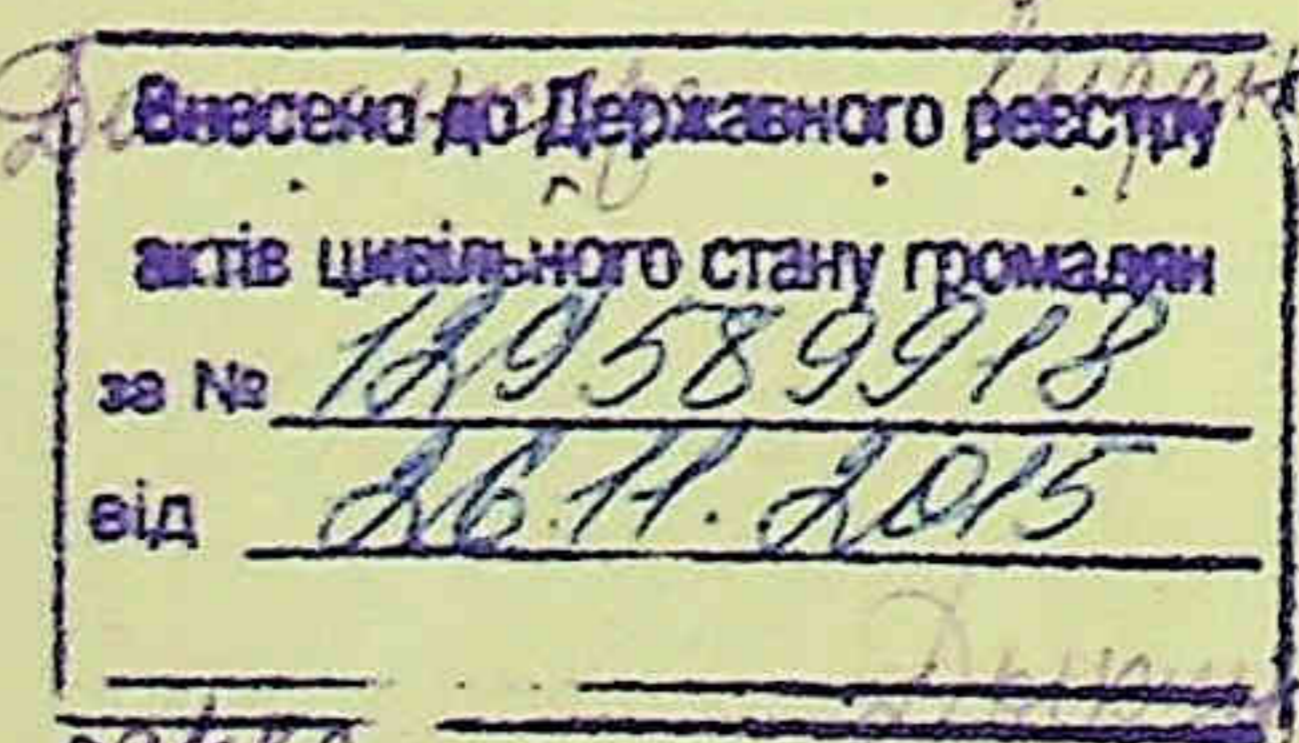 Внесено до Державного реєстру
актів цивільного стану громадян
за № 129589918
від 26.11.2015